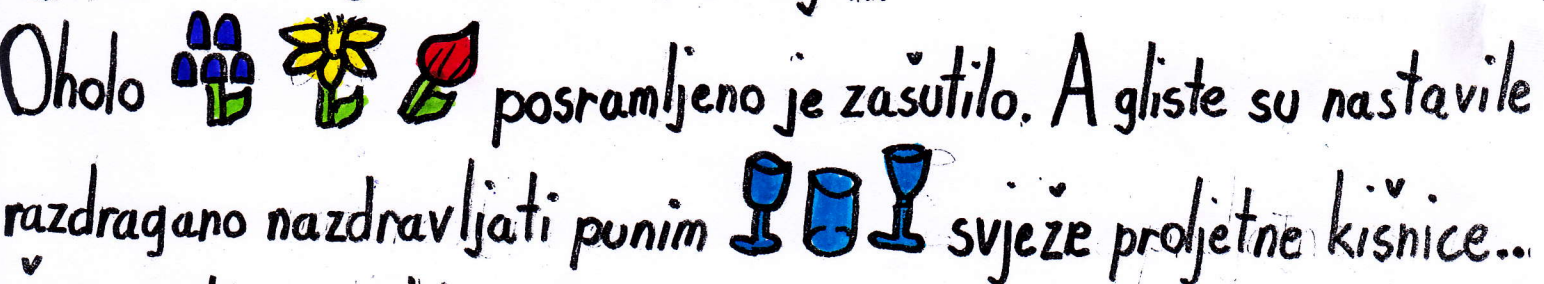 Oholo posramljeno je zašutilo. A gliste su nastavile
razdragano nazdravljati punim svježe proljetne kišnice...